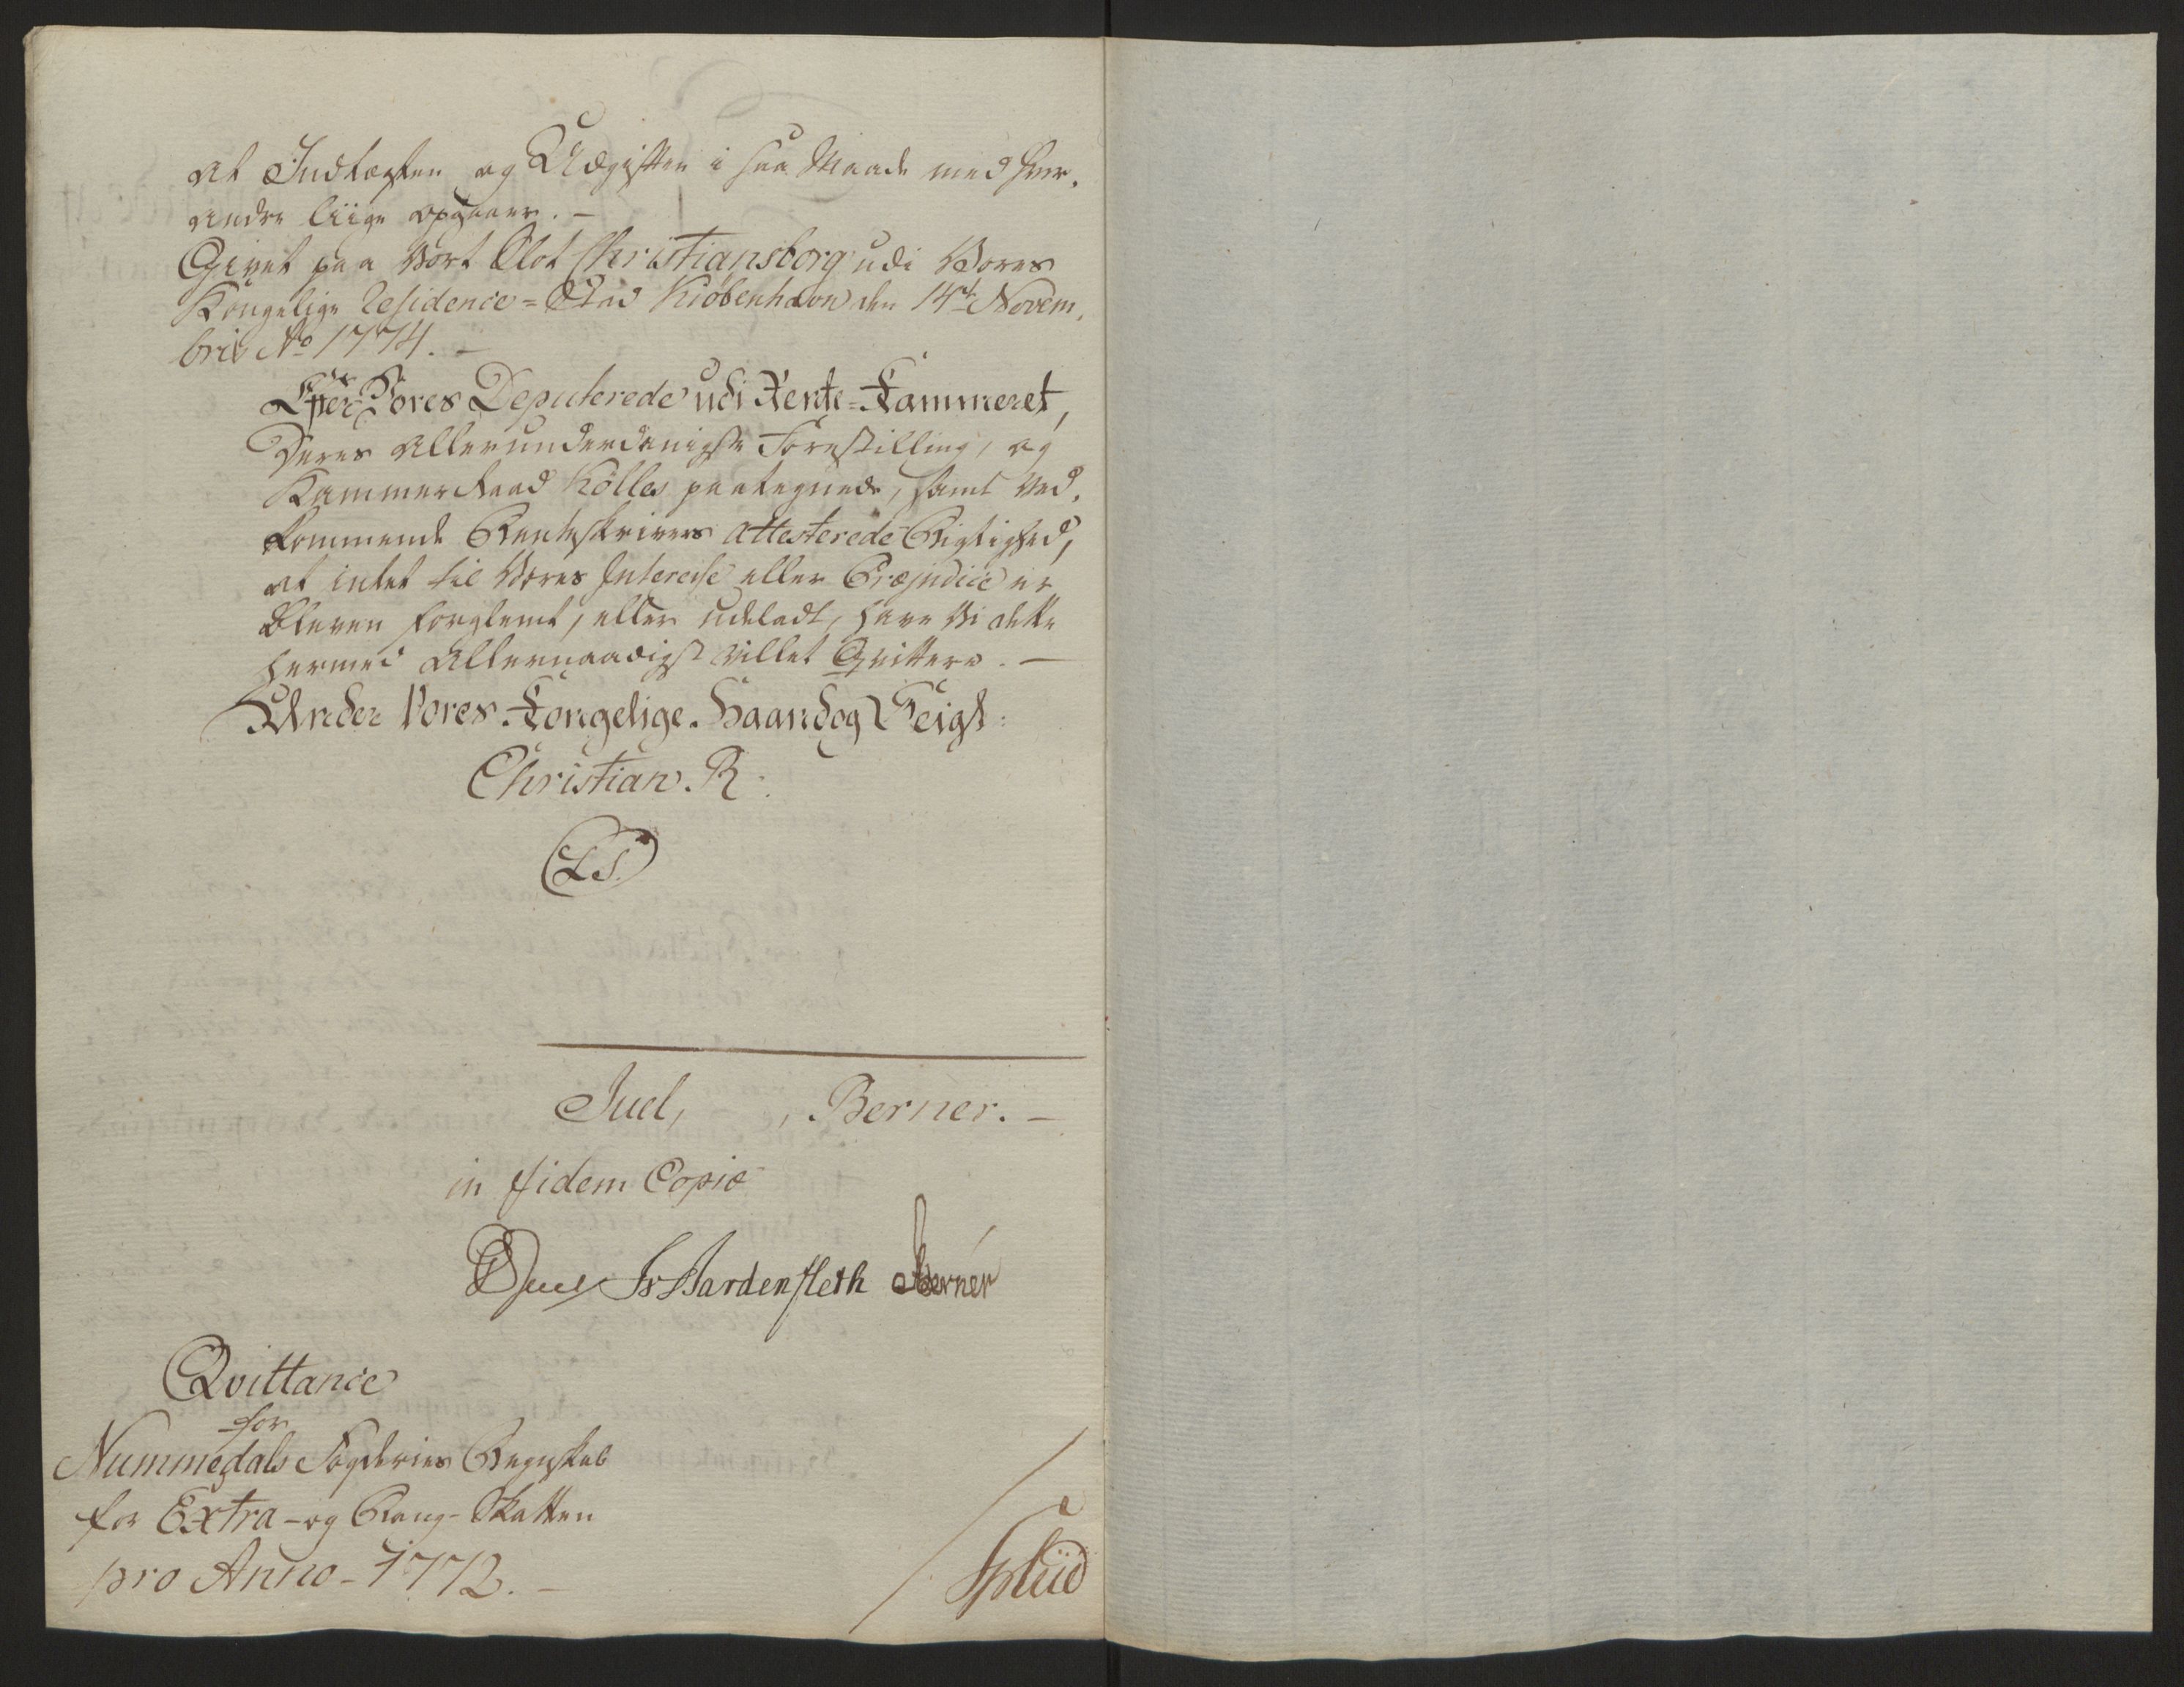 at Indtægten og Udgiften i saa Maade med hver,
andre liige opgaaer. –
Givet paa Vort Slot Christiansborg udi Vores
Kongelige Residence=Stad Kiöbenhavn den 14de Novem,
bris Ao 1774. –
Efter Vores Deputerede udi Rente=Kammeret,
Deres allerunderdanigste Forestilling, og
Kammerraad Kölles paategnede, samt Ved,
kommende Renteskrivers attesterede Rigtighed,
at intet til Vores Interesse eller Præjudice er
bleven forglemt, eller udeladt, have Vi dette
hermed allernaadigst villet Qvittere. –
Under Vores Kongelige Haand og Seigl:
Christian R.
(LS.)
Juel, , Berner. –
in fidem Copiæ
Juel Hardenfleth Berner
Qvittance
for
Nummedals Fogderies Regnskab
for Extra- og Rang-Skatten
pro Anno - 1772. –